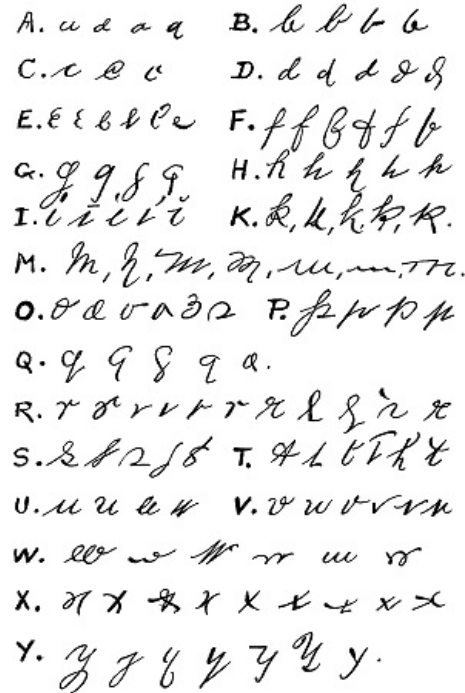 A. a a a a B. b b b b
C. c c c D. d d d d d
E. e e e e e e F. f f f f f f
G. g, g, g, g H. h h h h h
I. i i i i i K. k, k, k, k, k.
M. m, m, m, m, m, m, m.
O. o o o o o o P. p p p p
Q. q q q q q.
R. r r r r r r r r r r r
S. s s s s s T. t t t t t t
U. u u u u V. v v v v v v
W. w w w w w w
X. x x x x x x x x x
Y. y y y y y y y.